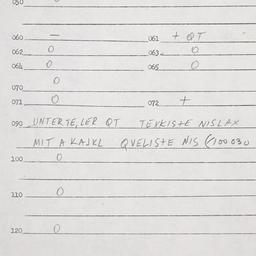 050
060 — 061 + QT
062 0 063 0
064 0 065 0
0
070
071 0 072 +
090 UNTERTE,LER QT TEVKISTE NISLAX
MIT A KAJKL QVELISTE NIS
100 0
110 0
120 0